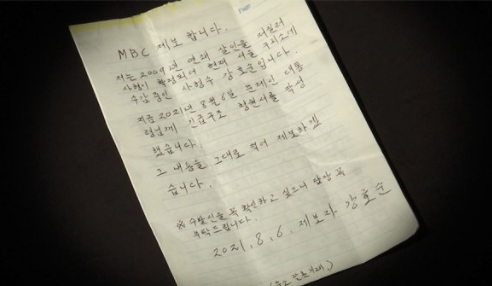 MBC 제보 합니다.
저는 2009년 연쇄 살인을 저질러
사형이 확정되어 현재 서울 구치소에
수감 중인 사형수 강호순입니다.
저는 2021년 8월 6일 문재인 대통
령님께 긴급구조 청원서를 작성
했습니다.
그 내용을 그대로 적어 제보하겠
습니다.
※ 수발인을 꼭 확인하고 싶으니 답장 꼭
부탁드립니다.
2021. 8. 6. 제보자 강호순